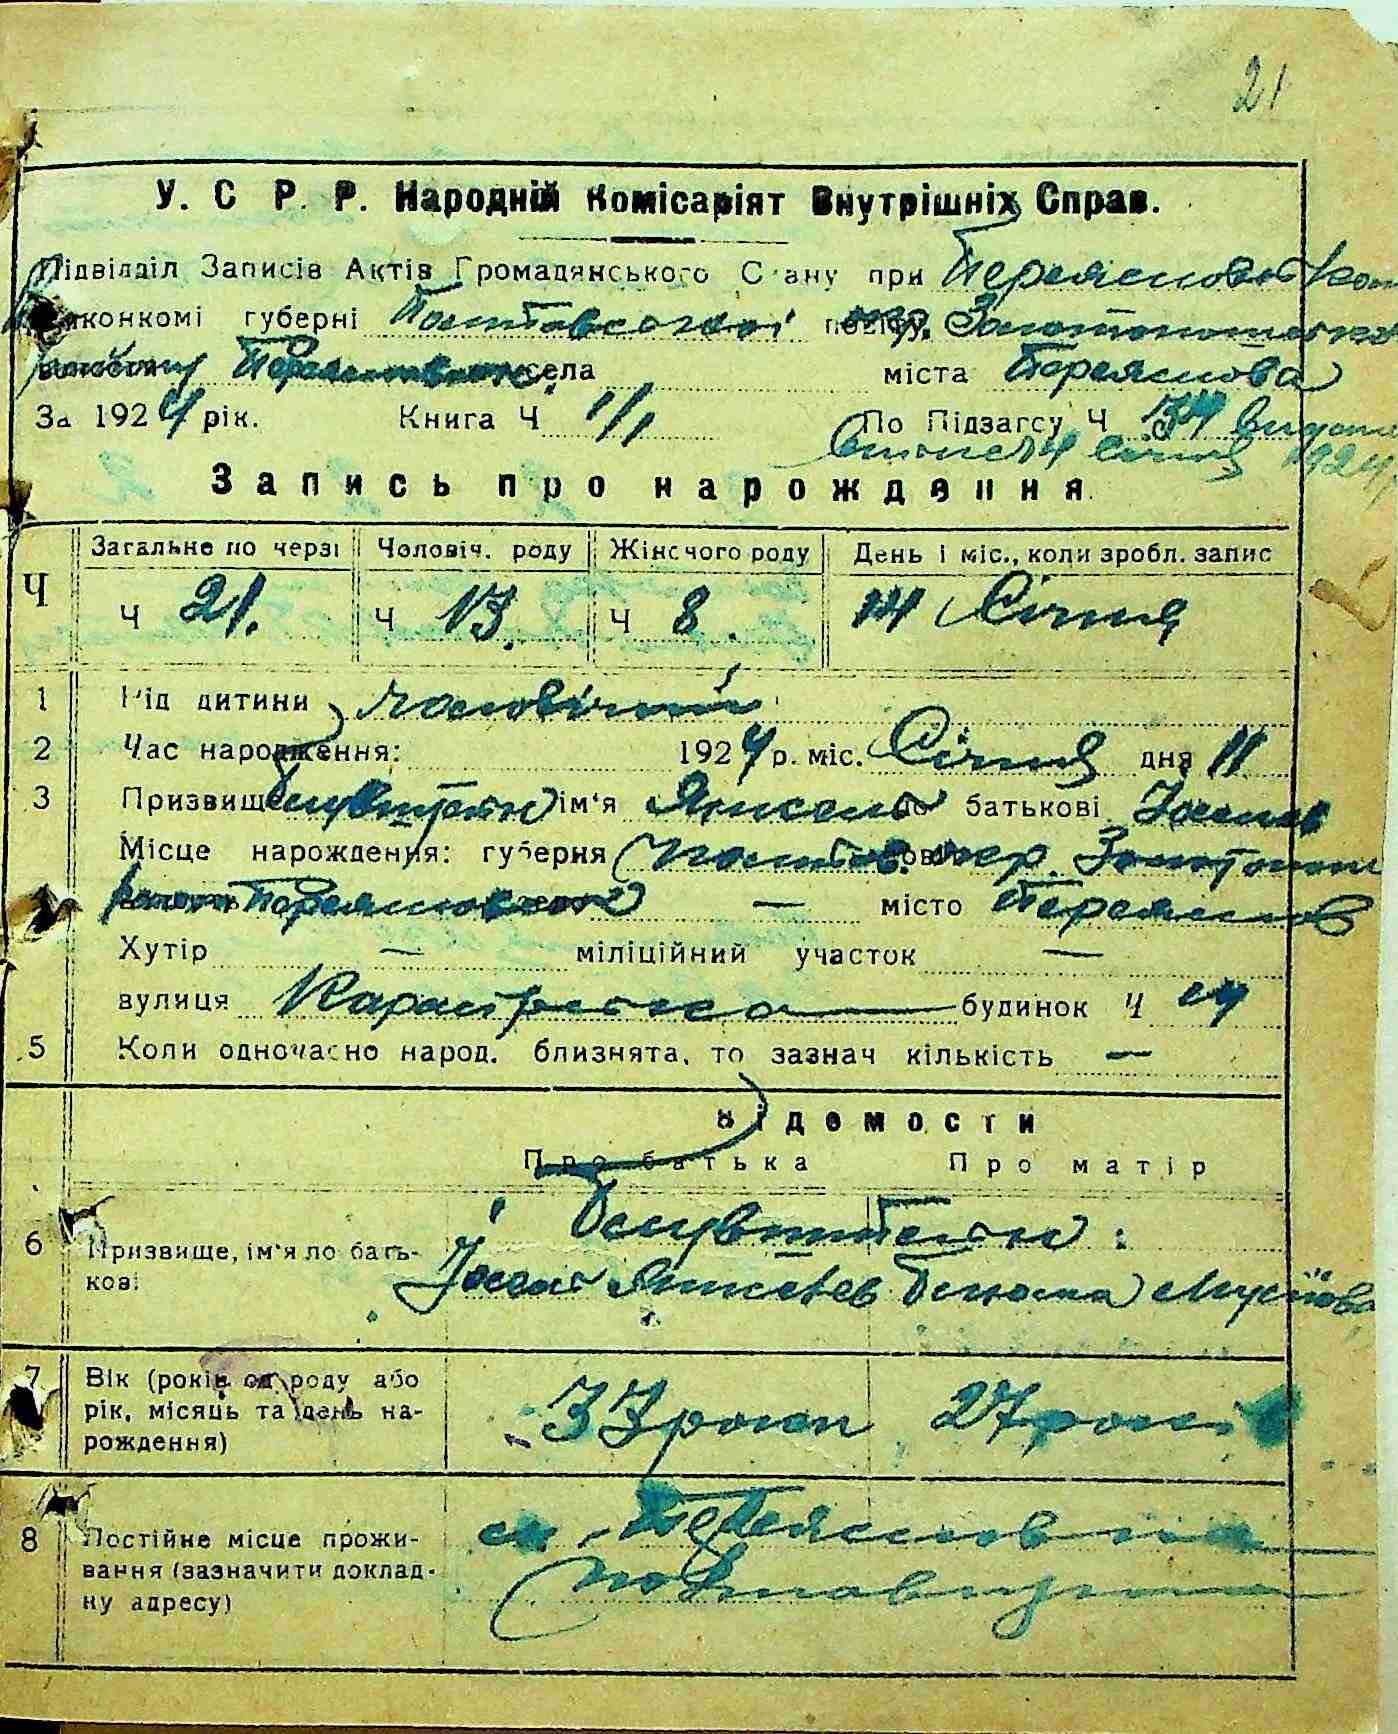 21
У. С Р. Р. Народній Комісаріят Внутрішніх Справ.
Підвідділ Записів Актів Громадянського Стану при Переяславськ
Виконкомі губерні Полтавської окр. Золотоноського
району Переяславського села міста Переяслова
За 1924 рік. Книга Ч 1/1 По Підзагсу Ч
Січня 1924
Запись про народження
Загальне по черзі Чоловіч. роду Жіночого роду День і міс., коли зробл. запис
Ч Ч 21. Ч 13. Ч 8. 14 Січня
1 Рід дитини чоловічий
2 Час народження: 1924 р. міс. Січня дня 11
3 Призвище ім'я Янкель по батькові
Місце нарождення: губерня Полтав. окр. Золотонош
4 Переяславськ — місто Переяслов
Хутір — міліційний участок —
вулиця будинок Ч
5 Коли одночасно народ. близнята, то зазнач кількість —
Відомости
Про батька Про матір
6 Призвище, ім'я по бать-
кові
7 Вік (років од роду або
рік, місяць та день на-
рождення) 37 роки 27 років
8 Постійне місце прожи-
вання (зазначити доклад-
ну адресу) м. Переяслов на
Полтавщині